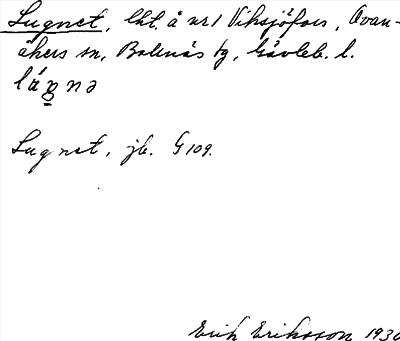 Lugnet, lht. å nr 1 Viksjöfors, Ovan-
åkers sn, Bollnäs tg, Gävleb. l.
Lugnet, jb. G 109.
Erik Eriksson 1930